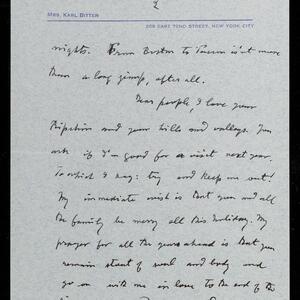 2
MRS. KARL BITTER
209 EAST 72ND STREET, NEW YORK CITY
nights. From Boston to is'nt more
than a long jump, after all.
Dear people, I love your
Ripshin and your hills and valleys. You
ask if I'm good for a visit next year.
To which I say: try and keep me out!
My immediate wish is that you and all
the family be merry all this holiday. My
prayer for all the years ahead is that you
remain stout of soul and body and
go on with me in love to the end of the